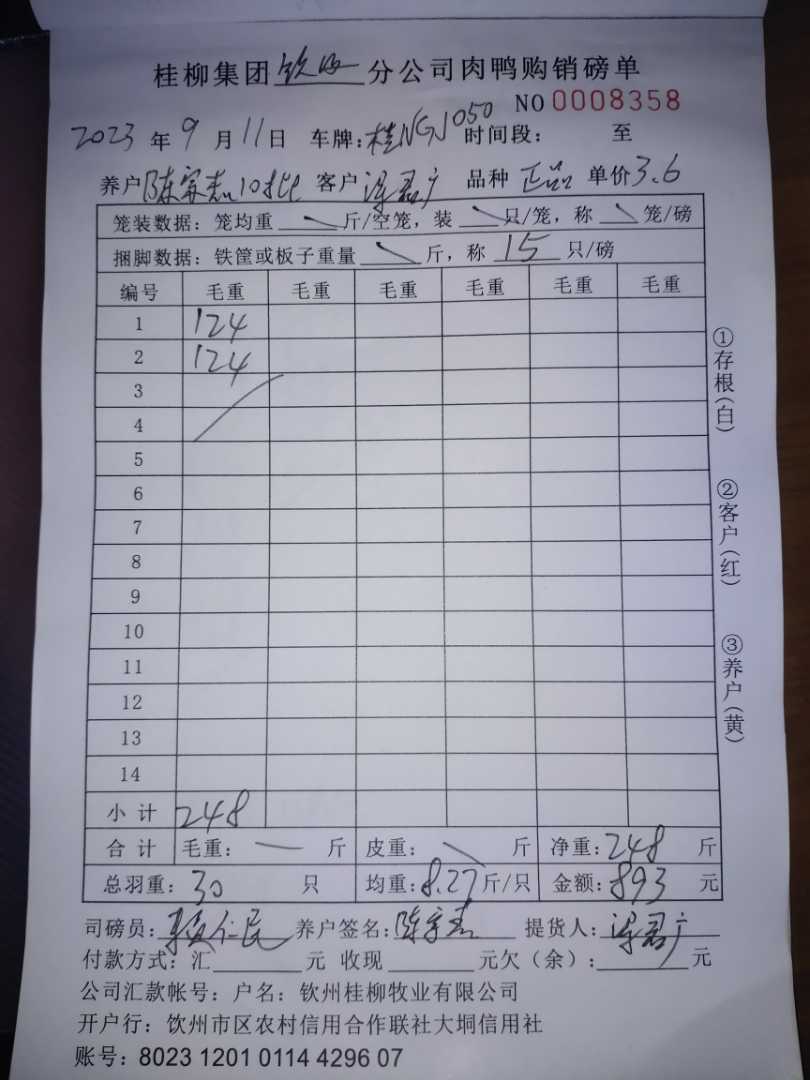 桂柳集团钦州分公司肉鸭购销磅单
NO 0008358
2023 年 9 月 11 日 车牌:桂NGN050 时间段: 至
养户 陈宗志10批 客户 品种 正品 单价 3.6
笼装数据: 笼均重 斤/空笼, 装 只/笼, 称 笼/磅
捆脚数据: 铁筐或板子重量 斤, 称 15 只/磅
编号 毛重 毛重 毛重 毛重 毛重 毛重
1 124
2 124
3
4
5
6
7
8
9
10
11
12
13
14
小 计 248
合 计 毛重: 斤 皮重: 斤 净重: 248 斤
总羽重: 30 只 均重: 8.27 斤/只 金额: 893 元
司磅员: 仁民 养户签名: 陈宗志 提货人:
付款方式: 汇 元 收现 元欠(余): 元
公司汇款帐号: 户名: 钦州桂柳牧业有限公司
开户行: 饮州市区农村信用合作联社大垌信用社
账号: 8023 1201 0114 4296 07
①存根(白)
②客户(红)
③养户(黄)